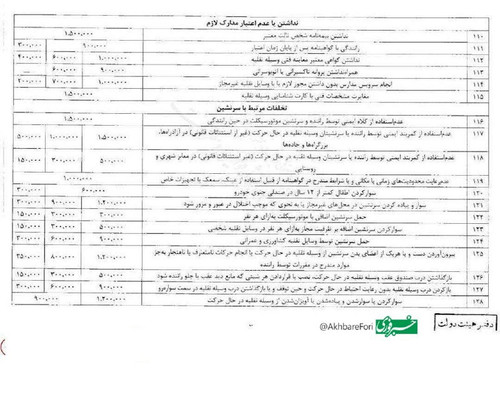 نداشتن یا عدم اعتبار مدارک لازم
۱۱۰ نداشتن بیمه‌نامه شخص ثالث معتبر ۱,۵۰۰,۰۰۰
۱۱۱ رانندگی با گواهینامه پس از پایان زمان اعتبار ۹۰۰,۰۰۰ ۳۰۰,۰۰۰
۱۱۲ نداشتن گواهی معتبر معاینه فنی وسیله نقلیه ۱,۰۰۰,۰۰۰ ۶۰۰,۰۰۰ ۴۰۰,۰۰۰
۱۱۳ همراه نداشتن پروانه تاکسیرانی یا اتوبوسرانی
۱۱۴ انجام سرویس مدارس بدون داشتن مجوز لازم یا با وسایل نقلیه غیرمجاز
۱۱۵ مغایرت مشخصات فنی با کارت شناسایی وسیله نقلیه ۱,۵۰۰,۰۰۰
تخلفات مرتبط با سرنشین
۱۱۶ عدم‌استفاده از کلاه ایمنی توسط راننده و سرنشین موتورسیکلت در حین رانندگی
۱۱۷ عدم‌استفاده از کمربند ایمنی توسط راننده یا سرنشینان وسیله نقلیه در حال حرکت (غیر از استثنائات قانونی) در آزادراه‌ها، ۱,۵۰۰,۰۰۰ ۱,۰۰۰,۰۰۰ ۵۰۰,۰۰۰
بزرگراه‌ها و جاده‌ها
۱۱۸ عدم‌استفاده از کمربند ایمنی توسط راننده یا سرنشینان وسیله نقلیه در حال حرکت (غیر از استثنائات قانونی) در معابر شهری و ۵۰۰,۰۰۰ ۳۰۰,۰۰۰ ۱۵۰,۰۰۰
روستایی
عدم‌رعایت محدودیت‌های زمانی یا مکانی و یا شرایط مندرج در گواهینامه از قبیل استفاده از عینک، سمعک یا تجهیزات خاص
سوارکردن اطفال کمتر از ۱۲ سال در صندلی جلوی خودرو ۶۰۰,۰۰۰
سوار و پیاده کردن سرنشین در محل‌های غیرمجاز یا به نحوی که موجب اختلال در عبور و مرور شود ۱,۲۰۰,۰۰۰ ۹۰۰,۰۰۰ ۳۰۰,۰۰۰
حمل سرنشین اضافی با موتورسیکلت به‌ازای هر نفر ۵۰۰,۰۰۰ ۳۰۰,۰۰۰ ۱۵۰,۰۰۰
حمل سرنشین اضافه بر ظرفیت مجاز به‌ازای هر نفر در وسایل نقلیه شخصی
حمل سرنشین توسط وسایل نقلیه کشاورزی و عمرانی
۱۲۵ بیرون‌آوردن دست و یا هریک از اعضای بدن سرنشین از وسیله نقلیه در حال حرکت یا انجام حرکات نامتعارف یا ناهنجار به‌جز ۱,۲۰۰,۰۰۰ ۸۰۰,۰۰۰
موارد مندرج در مقررات توسط راننده
۱۲۶ بازگذاشتن درب صندوق عقب وسیله نقلیه در حال حرکت، نصب یا قراردادن هر شیئی که مانع دید عقب یا جلو راننده شود ۵۰۰,۰۰۰ ۳۰۰,۰۰۰ ۱۵۰,۰۰۰
۱۲۷ بازکردن درب وسیله نقلیه بدون رعایت احتیاط در حال حرکت و حین توقف و یا بازگذاشتن درب وسیله نقلیه در سمت سواره‌رو ۱,۰۰۰,۰۰۰ ۶۰۰,۰۰۰ ۳۰۰,۰۰۰
۱۲۸ سوارکردن یا سوارشدن و پیاده‌شدن یا آویزان‌شدن از وسیله نقلیه در حال حرکت ۱,۲۰۰,۰۰۰ ۹۰۰,۰۰۰
دفتر هیئت دولت
خبرفوری @AkhbareFori